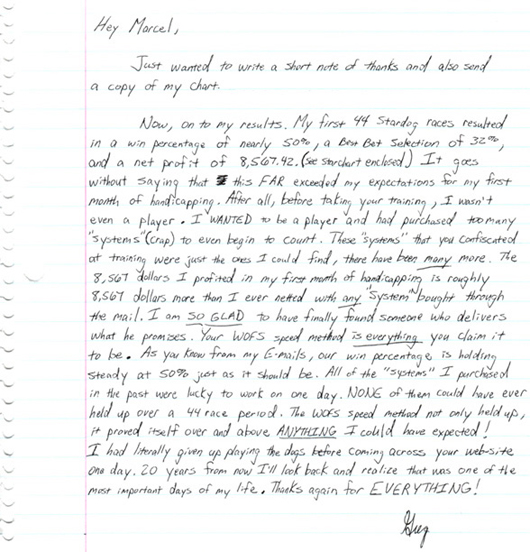 Hey Marcel,
Just wanted to write a short note of thanks and also send
a copy of my chart.
Now, on to my results. My first 44 Stardog races resulted
in a win percentage of nearly 50%, a Best Bet Selection of 32%,
and a net profit of 8,567.42. (see starchart enclosed.) It goes
without saying that this FAR exceeded my expectations for my first
month of handicapping. After all, before taking your training, I wasn't
even a player. I WANTED to be a player and had purchased too many
"systems" (crap) to even begin to count. These "systems" that you confiscated
at training were just the ones I could find, there have been many more. The
8,567 dollars I profited in my first month of handicapping is roughly
8,567 dollars more than I ever netted with any "system" bought through
the mail. I am SO GLAD to have finally found someone who delivers
what he promises. Your WOFS speed method is everything you claim it
to be. As you know from my E-mails, our win percentage is holding
steady at 50% just as it should be. All of the "systems" I purchased
in the past were lucky to work on one day. NONE of them could have ever
held up over a 44 race period. The WOFS speed method not only held up,
it proved itself over and above ANYTHING I could have expected!
I had literally given up playing the dogs before coming across your web-site
one day. 20 years from now I'll look back and realize that was one of the
most important days of my life. Thanks again for EVERYTHING!
Greg